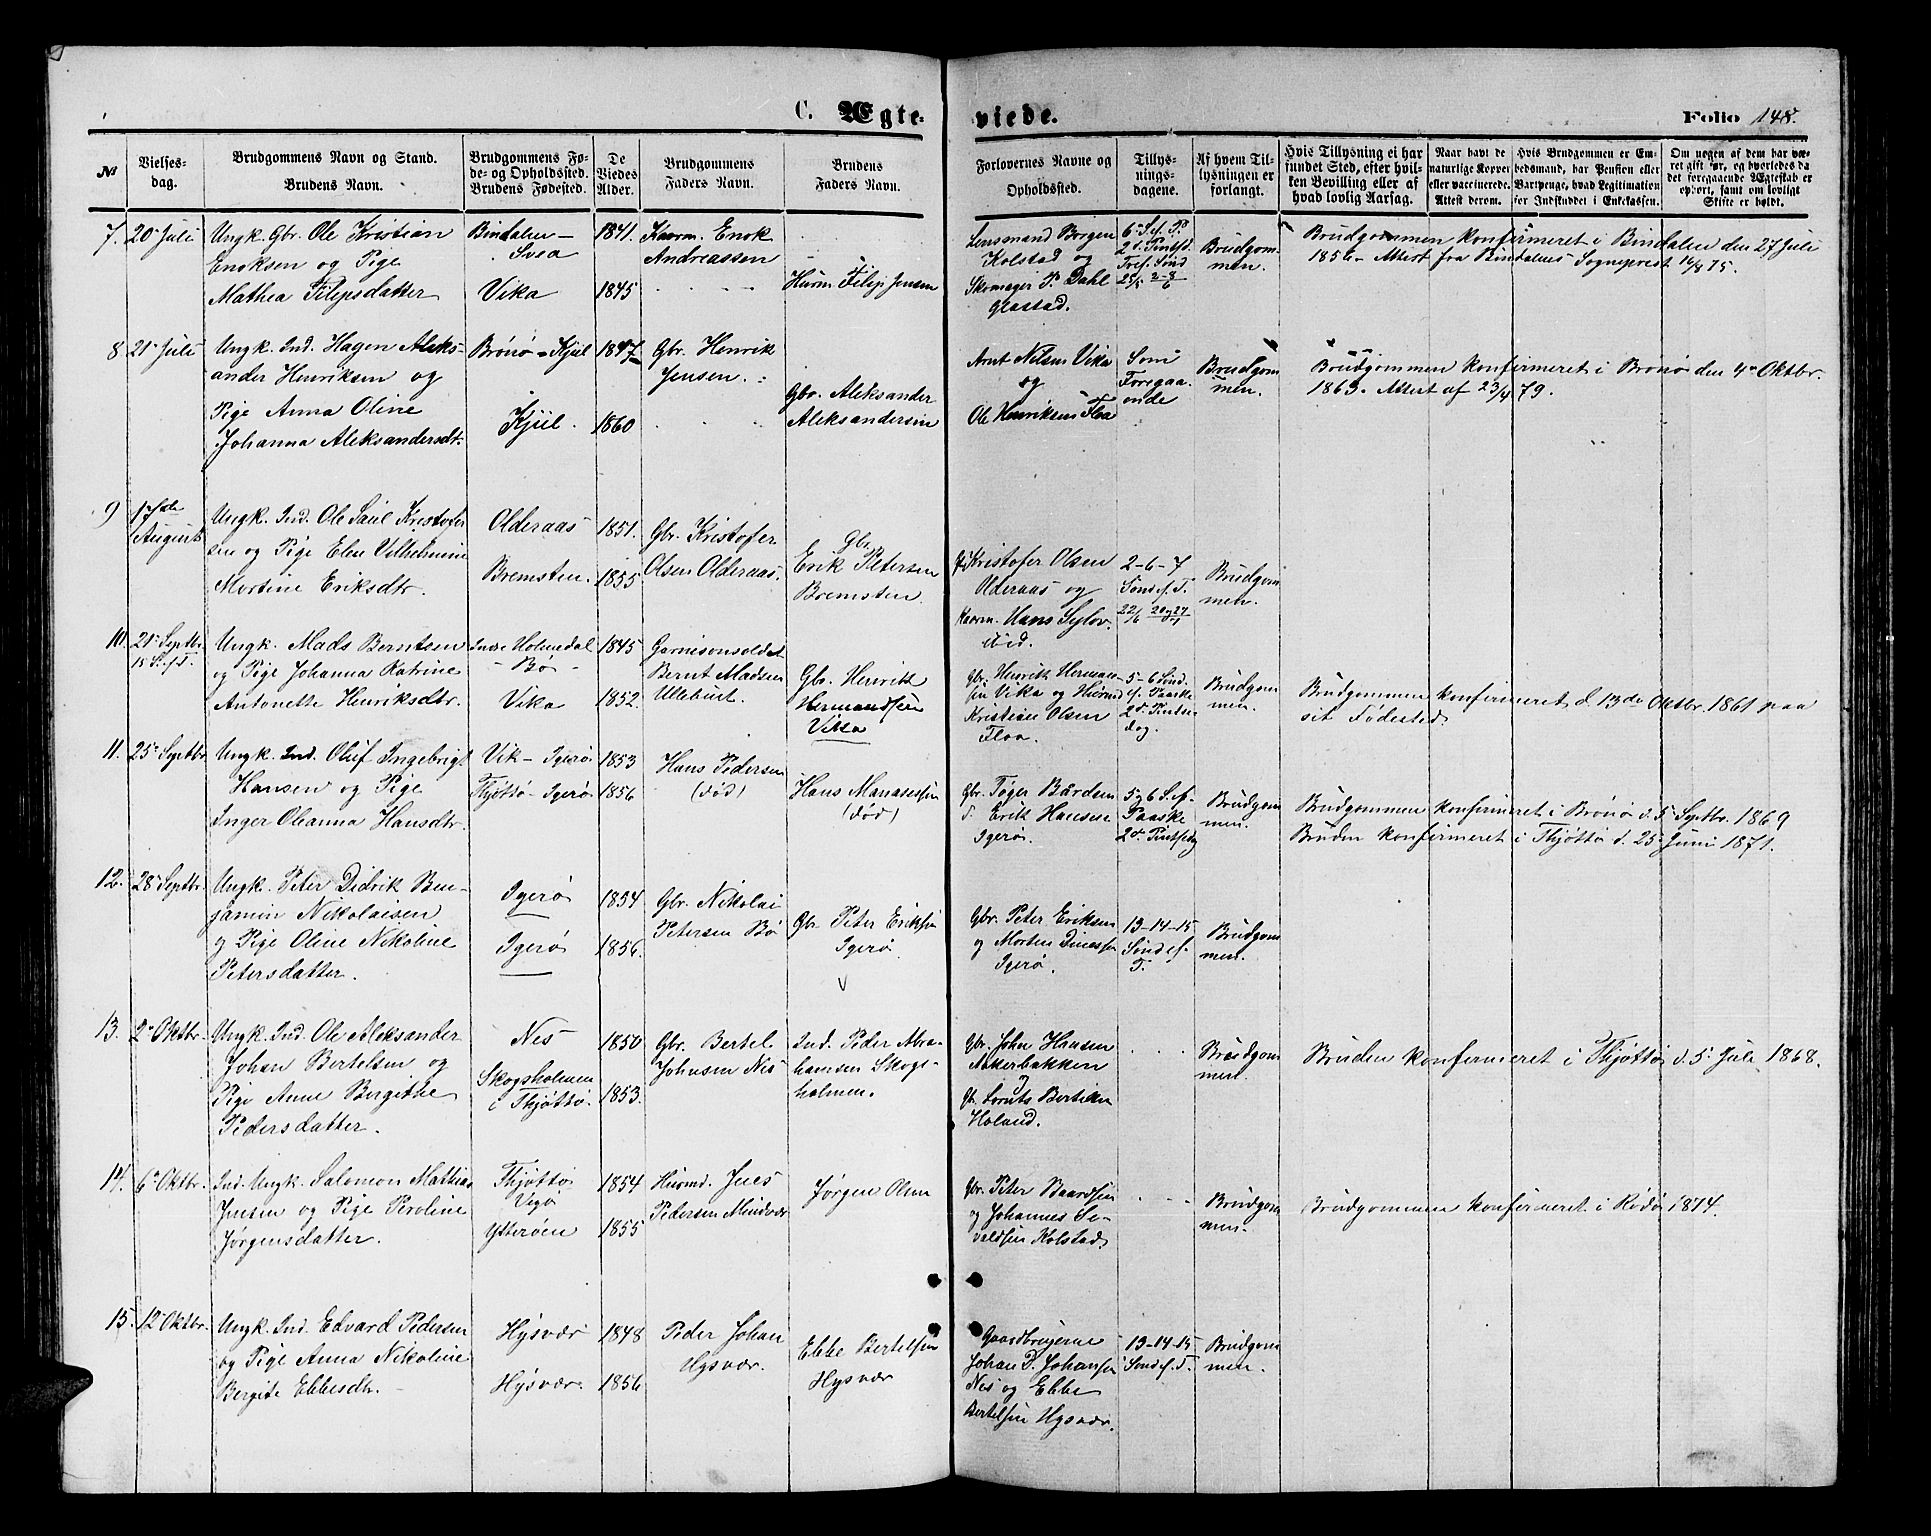 C. Ægte-
viede.
Folio 148.
No
Vielses-
dag.
Brudgommens Navn og Stand.
Brudens Navn.
Brudgommens Fø-
de- og Opholdssted.
Brudens Fødested.
De
Viedes
Alder.
Brudgommens
Faders Navn.
Brudens
Faders Navn.
Forlovernes Navne og
Opholdssted.
Tillys-
nings-
dagene.
Af hvem Til-
lysningen er
forlangt.
Hvis Tillysning ei har
fundet Sted, efter hvil-
ken Bevilling eller af
hvad lovlig Aarsag.
Naar havt de
naturlige Kopper
eller vaccinerede.
Attest derom.
Hvis Brudgommen er Em-
bedsmand, har Pension eller
Vartpenge, hvad Legitimation
for Indskuddet i Enkekassen.
Om nogen af dem har væ-
ret gift før, og hvorledes da
det foregaaende Ægteskab er
ophørt, samt om lovligt
Skifte er holdt.
7. 20 Juli
Ungk. Gbr. Ole Kristian
Enoksen og Pige
Mathea Filipsdatter
Bindalen -
Svea
Vika
1841.
1845
Kaarm. Enok
Andreassen
Husm Filip Jensen
Lensmand Borgen
Kolstad og
Skomager P. Dahl
6 S. ef. P.
2d. Pintsd.
Tref. Sønd
25/5 2-8/6
Brudgom-
men.
Brudgommen konfirmeret i Bindalen den 27 Juli
1856 - Attest fra Bindalens Sogneprest 16/8 75.
8 21 Juli
Ungk. Ind. Hagen Aleks-
ander Henriksen og
Pige Anna Oline
Johanna Aleksandersdt.
Brønø - Kjul
Kjul.
1847
1860
Gbr. Henrik
Jensen.
Gbr. Aleksander
Aleksandersen
Arnt Nilsen Vika
og
Ole Henriksen Floa
Som
Foregaa-
ende
Brudgom
men.
Brudgommen konfirmeret i Brønø den 4 Oktbr.
1863. Attest af 23/4 79.
9 17de
August
Ungk. Ind. Ole Saul Kristofer
sen og Pige Elen Vilhelmine
Mortine Eriksdtr.
Olderaas
Bremsten.
1851.
1855
Gbr. Kristofer
Olsen Olderaas.
Gbr.
Erik Petersen
Bremsten.
Kristofer Olsen
Olderaas og
Kaarm. Hans Sylov.
ibid.
2-6-7
Sønd ef. T.
Brudgom
men.
10. 21 Septbr.
15 S. ef. T.
Ungk. Mads Berntsen
og Pige Johanna Katrine
Antonette Henriksdtr.
Indre Holmedal
- Bø -
Vika
1845
1852.
Garnisonsoldat
Bernt Madsen
Ullebust.
Gbr. Henrik
Hermandsen
Vika
Gbr. Henrik Herman-
sen Vika og Husmd
Kristian Olsen
Floa.
5-6 Sønd.
ef. Paaske
2d. Pintse-
dag.
Brudgom
men.
Brudgommen konfirmeret d. 13de Oktbr. 1861 paa
sit Fødested.
11. 25 Septbr
Ungk. Ind. Oluf Ingebrigt
Hansen og Pige
Inger Oleanna Hansdtr.
Vik - Igerø
Thjøttø - Igerø
1853
1856
Hans Pedersen
(død)
Hans Manassesen
(død)
Gbr. Tøger Bårdsen
Erik Hansen
Igerø.
5 og 6 S. ef.
Paaske
2d. Pintsedg
Brudgom
men.
Brudgommen konfirmeret i Brønø d. 5 Septbr. 1869
Bruden konfirmeret i Thjøttø d. 25 Juni 1871.
12. 28 Septbr.
Ungk. Peter Didrik Ben-
jamin Nikolaisen
og Pige Oline Nikoline
Petersdatter.
Igerø
Igerø
1854
1856.
Gbr. Nikolai
Petersen Bø
Gbr Peter Eriksen
Igerø.
Gbr. Peter Eriksen
og Morten Dinessen
Igerø.
13-14-15
Sønd ef.
T.
Brudgom
men.
13. 2 Oktbr.
Ungk. Ind. Ole Aleksander
Johan Bertelsen og
Pige Anne Bergithe
Pedersdatter.
Nes
Skogsholmen
i Thjøttø.
1850
1853.
Gbr. Bertel
Johnsen Nes
Ind. Peder Abra-
hamsen Skogs-
holmen.
Gbr. John Hansen
Nakerbakken
og
Horand.
Brudgom
men.
Bruden konfirmeret i Thjøttø d. 5 Juli 1868.
14. 6 Oktbr.
Ind. Ungk. Salomon Mathias
Jensen og Pige Peroline
Jørgensdatter.
Thjøttø
Vegø
Ytterøen
1854
1855
Husmd. Jens
Pedersen Mindvær
Jørgen Olsen
Gbr. Peter Baardsen
og Johannes Se-
valdsen Kolstad
Brudgom
men.
Brudgommen konfirmeret i Rødø 1874.
15. 12 Oktbr.
Ungk. Ind. Edvard Pedersen
og Pige Anna Nikoline
Bergite Ebbesdtr.
Hysvær
Hysvær.
1848
1856
Peder Johan
Hysvær.
Ebbe Bertelsen
Hysvær
Gaardbrugerne
Johan D. Johansen
Nes og Ebbe
Bertelsen Hysvær.
13-14-15
Sønd ef. T.
Brudgom
men.